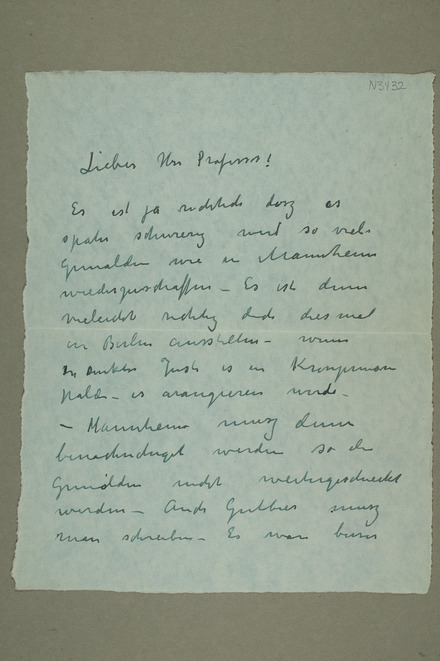 N3432
Lieber Herr Professor!
Es ist ja dasz es
später schwierig wird so viele
Gemälden wie in Mannheim
wiederzuschaffen – Es ist dann
vieleicht richtig dieses mal
in Berlin ausstellen – wenn
Justi es in Kronprinzen
palä – es arangieren
– Mannheim musz dann
benachrichtiget werden so die
Gemälden nicht weitergeschickt
werden – Auch musz
man schreiben – Es